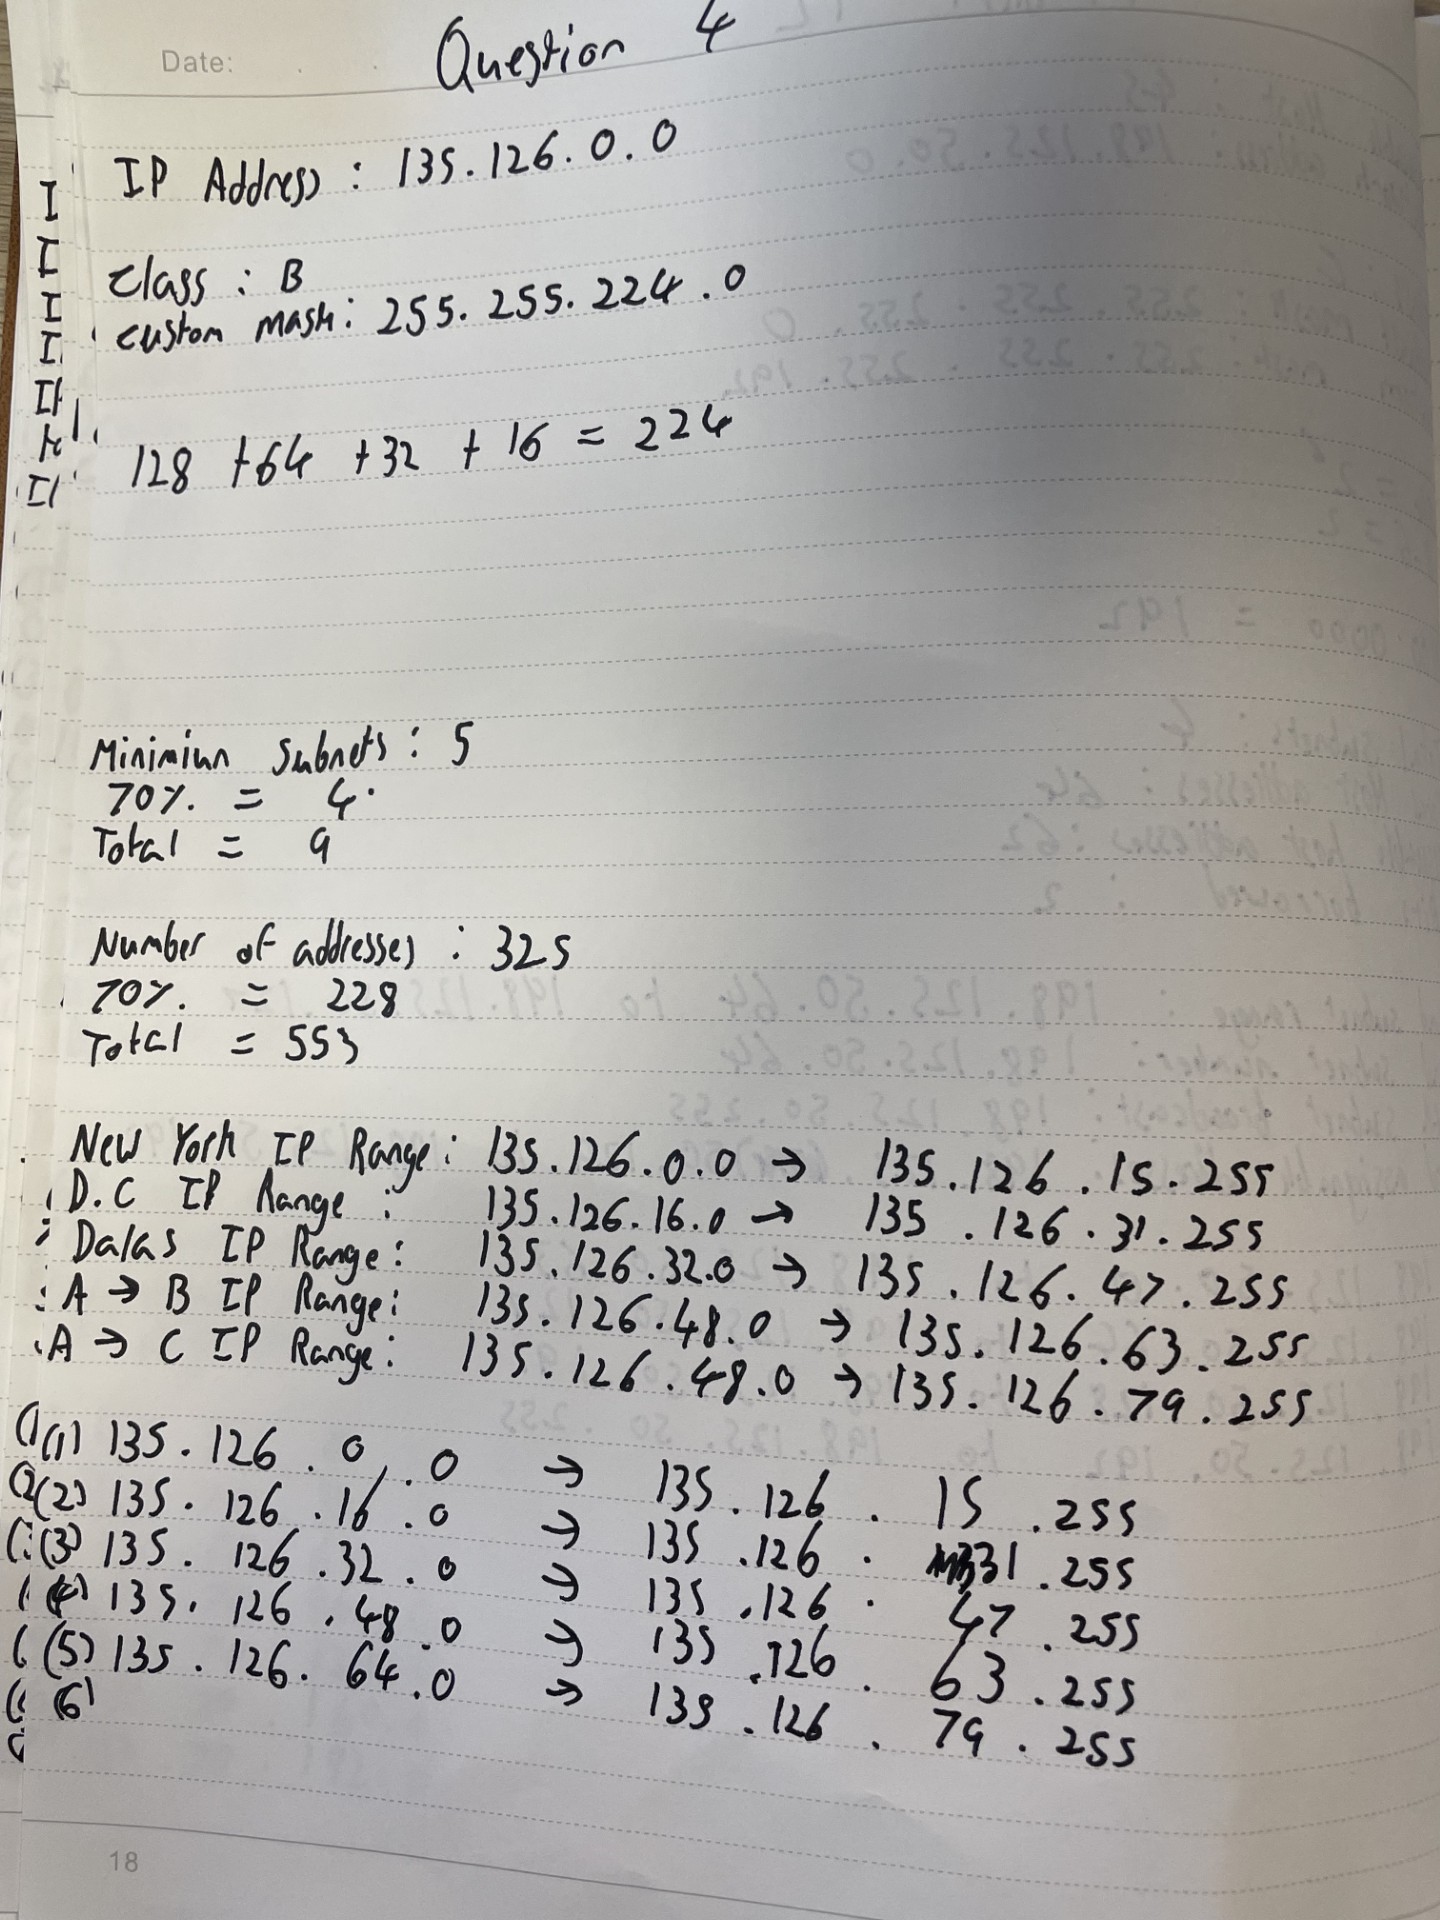 Date:
Question 4
IP Address : 135.126.0.0
Class : B
custom mask : 255.255.224.0
128 + 64 + 32 + 16 = 224
Minimiun Subnets : 5
70% = 4.
Total = 9
Number of addresses : 325
70% = 228
Total = 553
New York IP Range : 135.126.0.0 → 135.126.15.255
D.C IP Range : 135.126.16.0 → 135.126.31.255
Dalas IP Range : 135.126.32.0 → 135.126.47.255
A → B IP Range : 135.126.48.0 → 135.126.63.255
A → C IP Range : 135.126.48.0 → 135.126.79.255
(1) 135.126.0.0 → 135.126.15.255
(2) 135.126.16.0 → 135.126.31.255
(3) 135.126.32.0 → 135.126.47.255
(4) 135.126.48.0 → 135.126.63.255
(5) 135.126.64.0 → 135.126.79.255
(6)
18